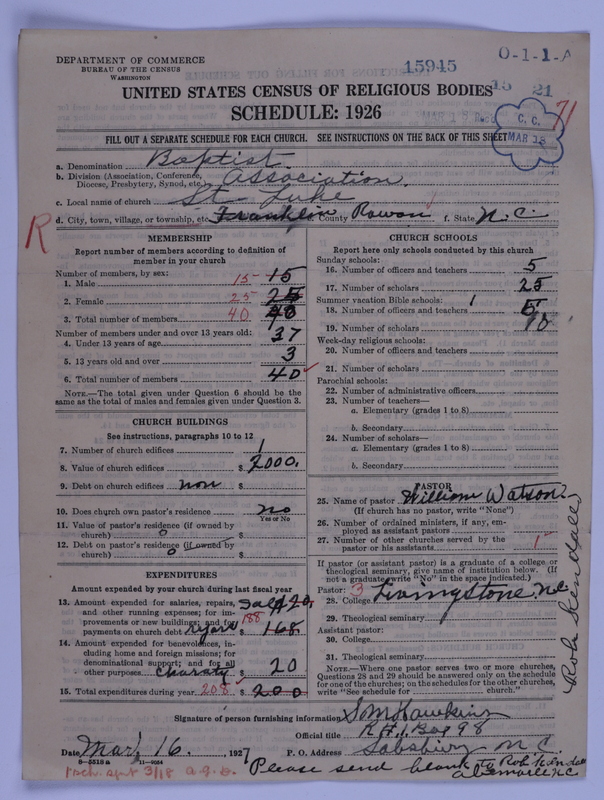 DEPARTMENT OF COMMERCE
BUREAU OF THE CENSUS
WASHINGTON
15945
O-1-1-A
15 21
UNITED STATES CENSUS OF RELIGIOUS BODIES
SCHEDULE: 1926
C. C.
MAR 18
71
FILL OUT A SEPARATE SCHEDULE FOR EACH CHURCH. SEE INSTRUCTIONS ON THE BACK OF THIS SHEET
a. Denomination Baptist
b. Division (Association, Conference, Diocese, Presbytery, Synod, etc.) Association
c. Local name of church St. Luke
d. City, town, village, or township, etc. Franklin e. County Rowan f. State N.C.
R
MEMBERSHIP
Report number of members according to definition of
member in your church
Number of members, by sex:
1. Male 15- 15
2. Female 25 25
3. Total number of members 40 40
Number of members under and over 13 years old:
4. Under 13 years of age 37
5. 13 years old and over 3
6. Total number of members 40
NOTE.—The total given under Question 6 should be
same as the total of males and females given under Question 3.
CHURCH BUILDINGS
See instructions, paragraphs 10 to 12
7. Number of church edifices 1
8. Value of church edifices $ 2000.
9. Debt on church edifices non $
10. Does church own pastor's residence no
Yes or No
11. Value of pastor's residence (if owned by
church) 0 $
12. Debt on pastor's residence (if owned by
church) 0 $
EXPENDITURES
Amount expended by your church during last fiscal year
13. Amount expended for salaries, repairs,
and other running expenses; for im-
provements or new buildings; and for
payments on church debt 188 $ 168
14. Amount expended for benevolences, in-
cluding home and foreign missions; for
denominational support; and for all
other purposes charaty $ 20
15. Total expenditures during year 208 $ 200
CHURCH SCHOOLS
Report here only schools conducted by this church
Sunday schools:
16. Number of officers and teachers 5
17. Number of scholars 25
Summer vacation Bible schools: 1
18. Number of officers and teachers 5
19. Number of scholars 10
Week-day religious schools:
20. Number of officers and teachers
21. Number of scholars
Parochial schools:
22. Number of administrative officers
23. Number of teachers—
a. Elementary (grades 1 to 8)
b. Secondary
24. Number of scholars—
a. Elementary (grades 1 to 8)
b. Secondary
PASTOR
25. Name of pastor William Watson
(If church has no pastor, write "None")
26. Number of ordained ministers, if any, em-
ployed as assistant pastors
27. Number of other churches served by the
pastor or his assistants 1
If pastor (or assistant pastor) is a graduate of a college or
theological seminary, give name of institution below. (If
not a graduate write "No" in the space indicated.)
Pastor: 3
28. College Livingstone N.C.
29. Theological seminary
Assistant pastor:
30. College
31. Theological seminary
NOTE.—Where one pastor serves two or more churches,
Questions 28 and 29 should be answered only on the schedule
for one of the churches; on the schedules for the other churches,
write "See schedule for church."
Rob Kendall
Signature of person furnishing information S M Hawkins
Official title R. #1. Box 98
Date Mar, 16, 1927 P. O. Address Salisbury N.C.
8-5518a 11-9054
3/18 a.g.o.
Please send blank to Rob Kendall
albemarle N.C.